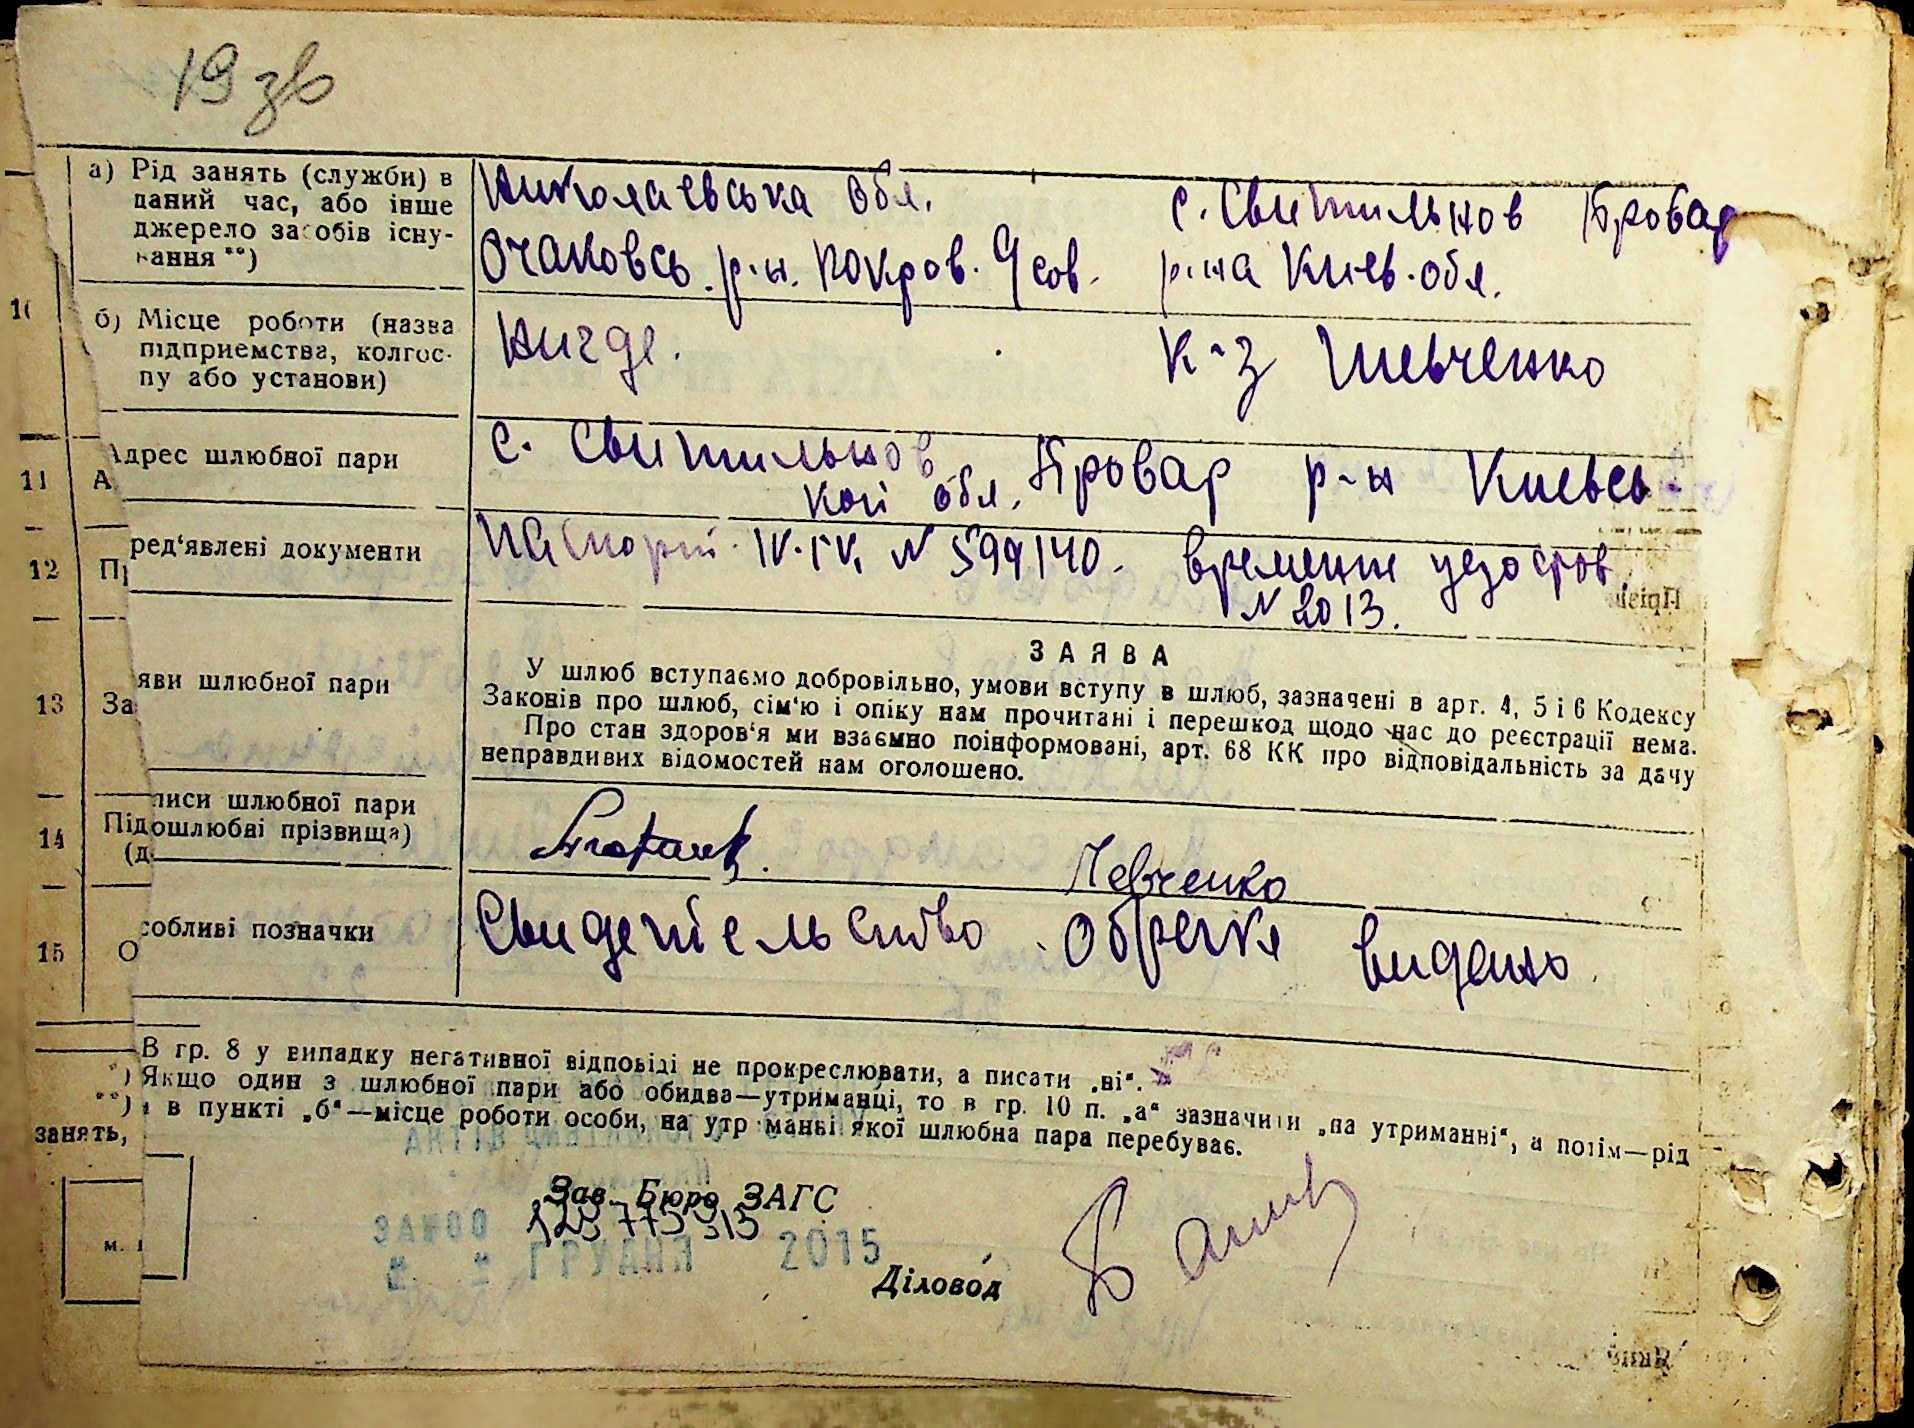 19 зв
а) Рід занять (служби) в
даний час, або інше
джерело засобів існу-
вання **)
Николаевська обл.
Очаковсь. р-н. Покров. с
с. Свитильнов Бровар
р-на Киев. обл.
10
б) Місце роботи (назва
підприємства, колгос-
пу або установи)
нигде.
к-з Шевченко
11 А Адрес шлюбної пари
с. Свитильнов Бровар р-н Киевсь-
кой обл.
12 Пред'явлені документи
Паспорт IV-ГК, N 599140. временне удостов.
N 2013.
13 Заяви шлюбної пари
ЗАЯВА
У шлюб вступаємо добровільно, умови вступу в шлюб, зазначені в арт. 4, 5 і 6 Кодексу
Законів про шлюб, сім'ю і опіку нам прочитані і перешкод щодо нас до реєстрації нема.
Про стан здоров'я ми взаємно поінформовані, арт. 68 КК про відповідальність за дачу
неправдивих відомостей нам оголошено.
14 Підписи шлюбної пари
(дошлюбні прізвища)
Шевченко
15 Особливі позначки
Свидетельство о браке видано.
В гр. 8 у випадку негативної відповіді не прокреслювати, а писати „ні“.
*) Якщо один з шлюбної пари або обидва—утриманці, то в гр. 10 п. „а“ зазначити „на утриманні“, а потім—рід
**) і в пункті „б“—місце роботи особи, на утриманні якої шлюбна пара перебуває.
занять,
Зав. Бюро ЗАГС
ГРУДНЯ 2015
Діловод
м.